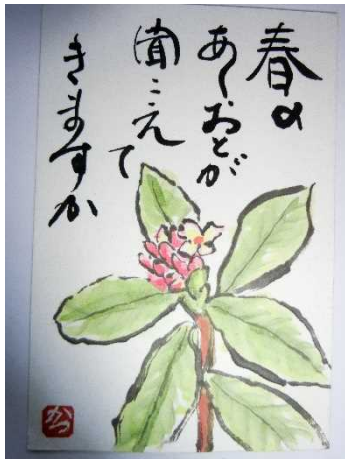 春の
あしおとが
聞こえて
きますか
かつ